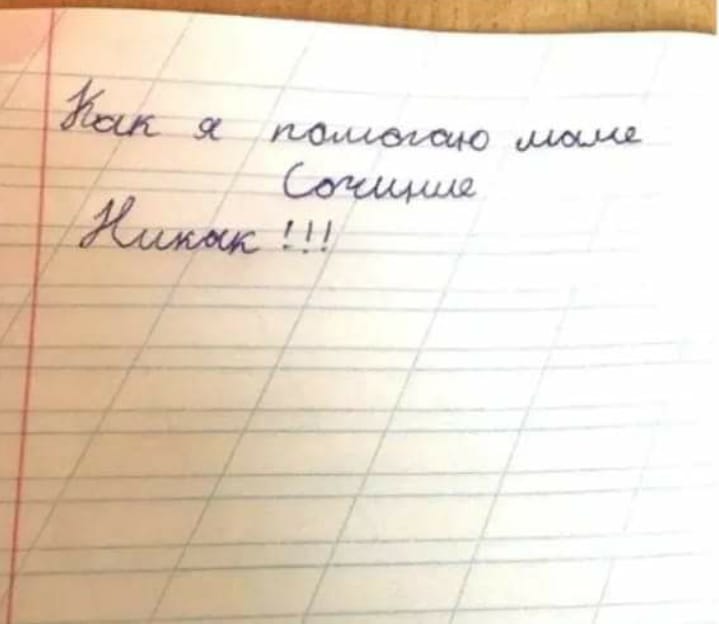 Как я помогаю маме
Сочинине
Никак!!!